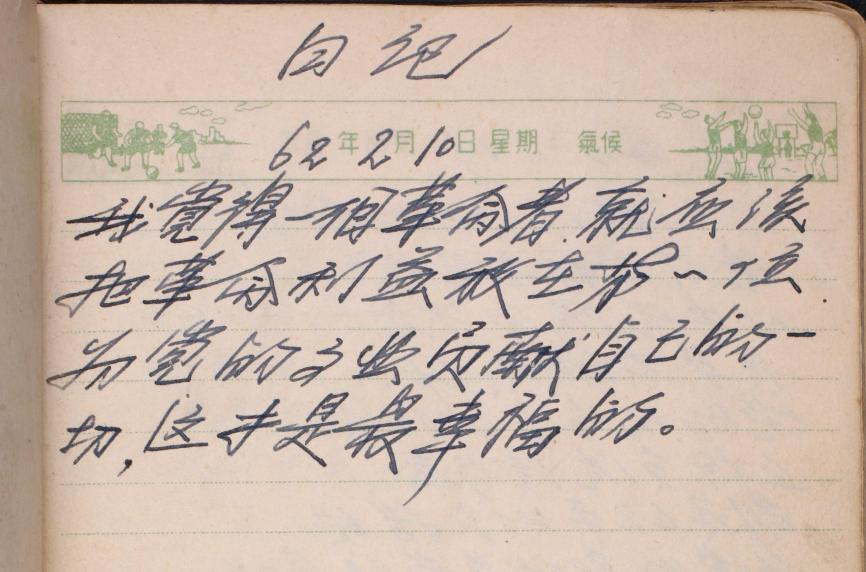 日记
62年2月10日星期 氣候
我覚得一个革命者就应该
把革命利益放在第一位
为党的事业贡献自己的一
切,这才是最幸福的。